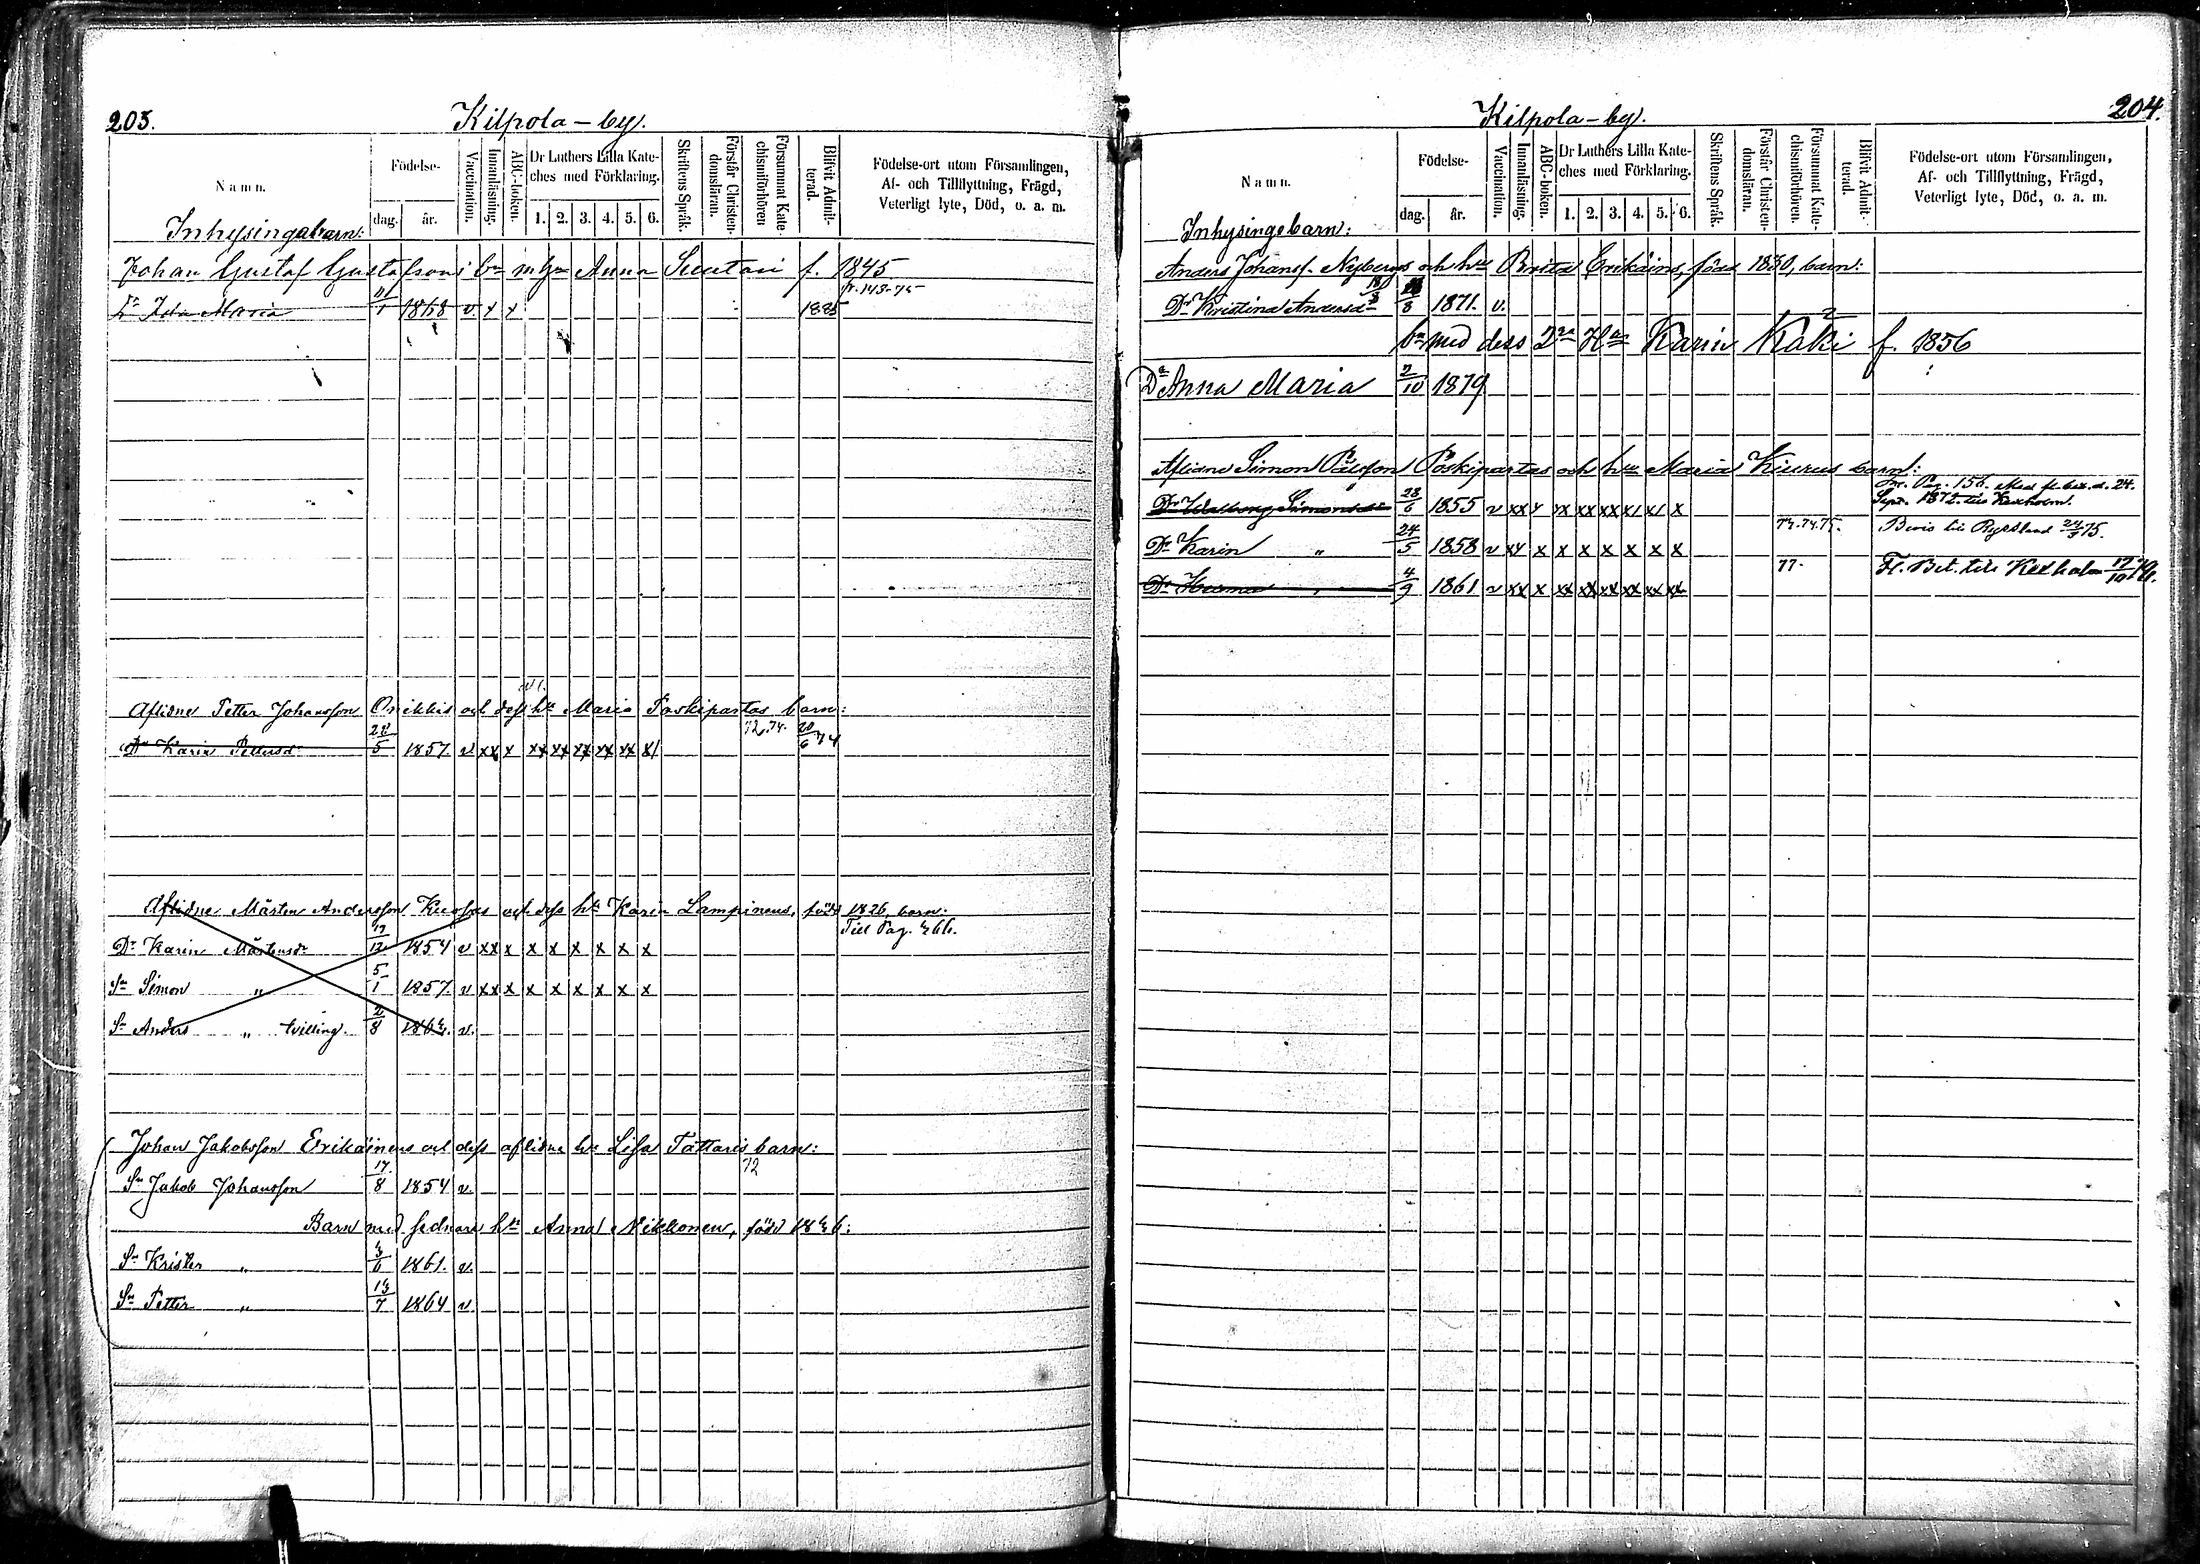 203.
Kilpola-by.
Namn.
Födelse-
dag. år.
Vaccination.
Innanläsning.
ABC-boken.
Dr Luthers Lilla Kate-
ches med Förklaring.
1. 2. 3. 4. 5. 6.
Skriftens Språk.
Förstår Christen-
domsläran.
Försummat Kate-
chismiförhören
Blifvit Admit-
terad.
Födelse-ort utom Församlingen,
Af- och Tillflyttning, Frägd,
Veterligt lyte, Död, o. a. m.
Inhysingabarn:
Johan Gustaf Gustafssons bn m hu Anna Suutari f. 1845
Dr Ida Maria 11/1 1868 v. x x 1885 p. 148-75
Aflidne Petter Johansson Onikkis och dess hu Maria Poskipartas barn:
Dr Karin Pettersdr 28/5 1857. v xx x xx xx xx xx xx x1 72.74. 20/6 74
Aflidne Mårten Andersson Kuosas och dess hu Karin Lampinens, född 1826, barn:
Till Pag. 266.
Dr Karin Mårtensdr 17/12 1854 v xx x x x x x x x
Sn Simon " 5/1 1857. v xx x x x x x x x
Sn Anders " tvilling. 2/8 1863. v.
Johan Jakobsson Erikäinens och dess aflidne hu Lisa Tattaris barn:
Sn Jakob Johansson 17/8 1854 v. 72
Barn med sednare hu Anna Nikkonen, född 1836:
Sn Krister " 3/6 1861. v.
Sn Petter " 13/7 1864 v.
204.
Kilpola-by.
Namn.
Födelse-
dag. år.
Vaccination.
Innanläsning.
ABC-boken.
Dr Luthers Lilla Kate-
ches med Förklaring.
1. 2. 3. 4. 5. 6.
Skriftens Språk.
Förstår Christen-
domsläran.
Försummat Kate-
chismiförhören.
Blifvit Admit-
terad.
Födelse-ort utom Församlingen,
Af- och Tillflyttning, Frägd,
Veterligt lyte, Död, o. a. m.
Inhysingebarn:
Anders Johanss. Nybergs och hu Brita Erikäins, född 1830, barn:
Dr Kristina Andersdr 18/3 1871. v.
bn med dess 2dra Hu Karin Käki f. 1856
Dr Anna Maria 2/10 1879
Aflidne Simon Pålsson Pöskipartas och hu Maria Kiurus barn:
Dr Walborg Simonsdr 28/6 1855 v xx x xx xx xx x1 x1 x Pag. 156. Med fl. bet. d. 24.
Sept. 1872 till Kexholm.
Dr Karin " 24/5 1858 v xx x x x x x x x 73.74.75. Bevis till Ryssland 24/9 75.
Dr 4/9 1861 v xx x xx xx xx xx xx xx 77. Fl. Bet. till Kexholm 17/10 76.